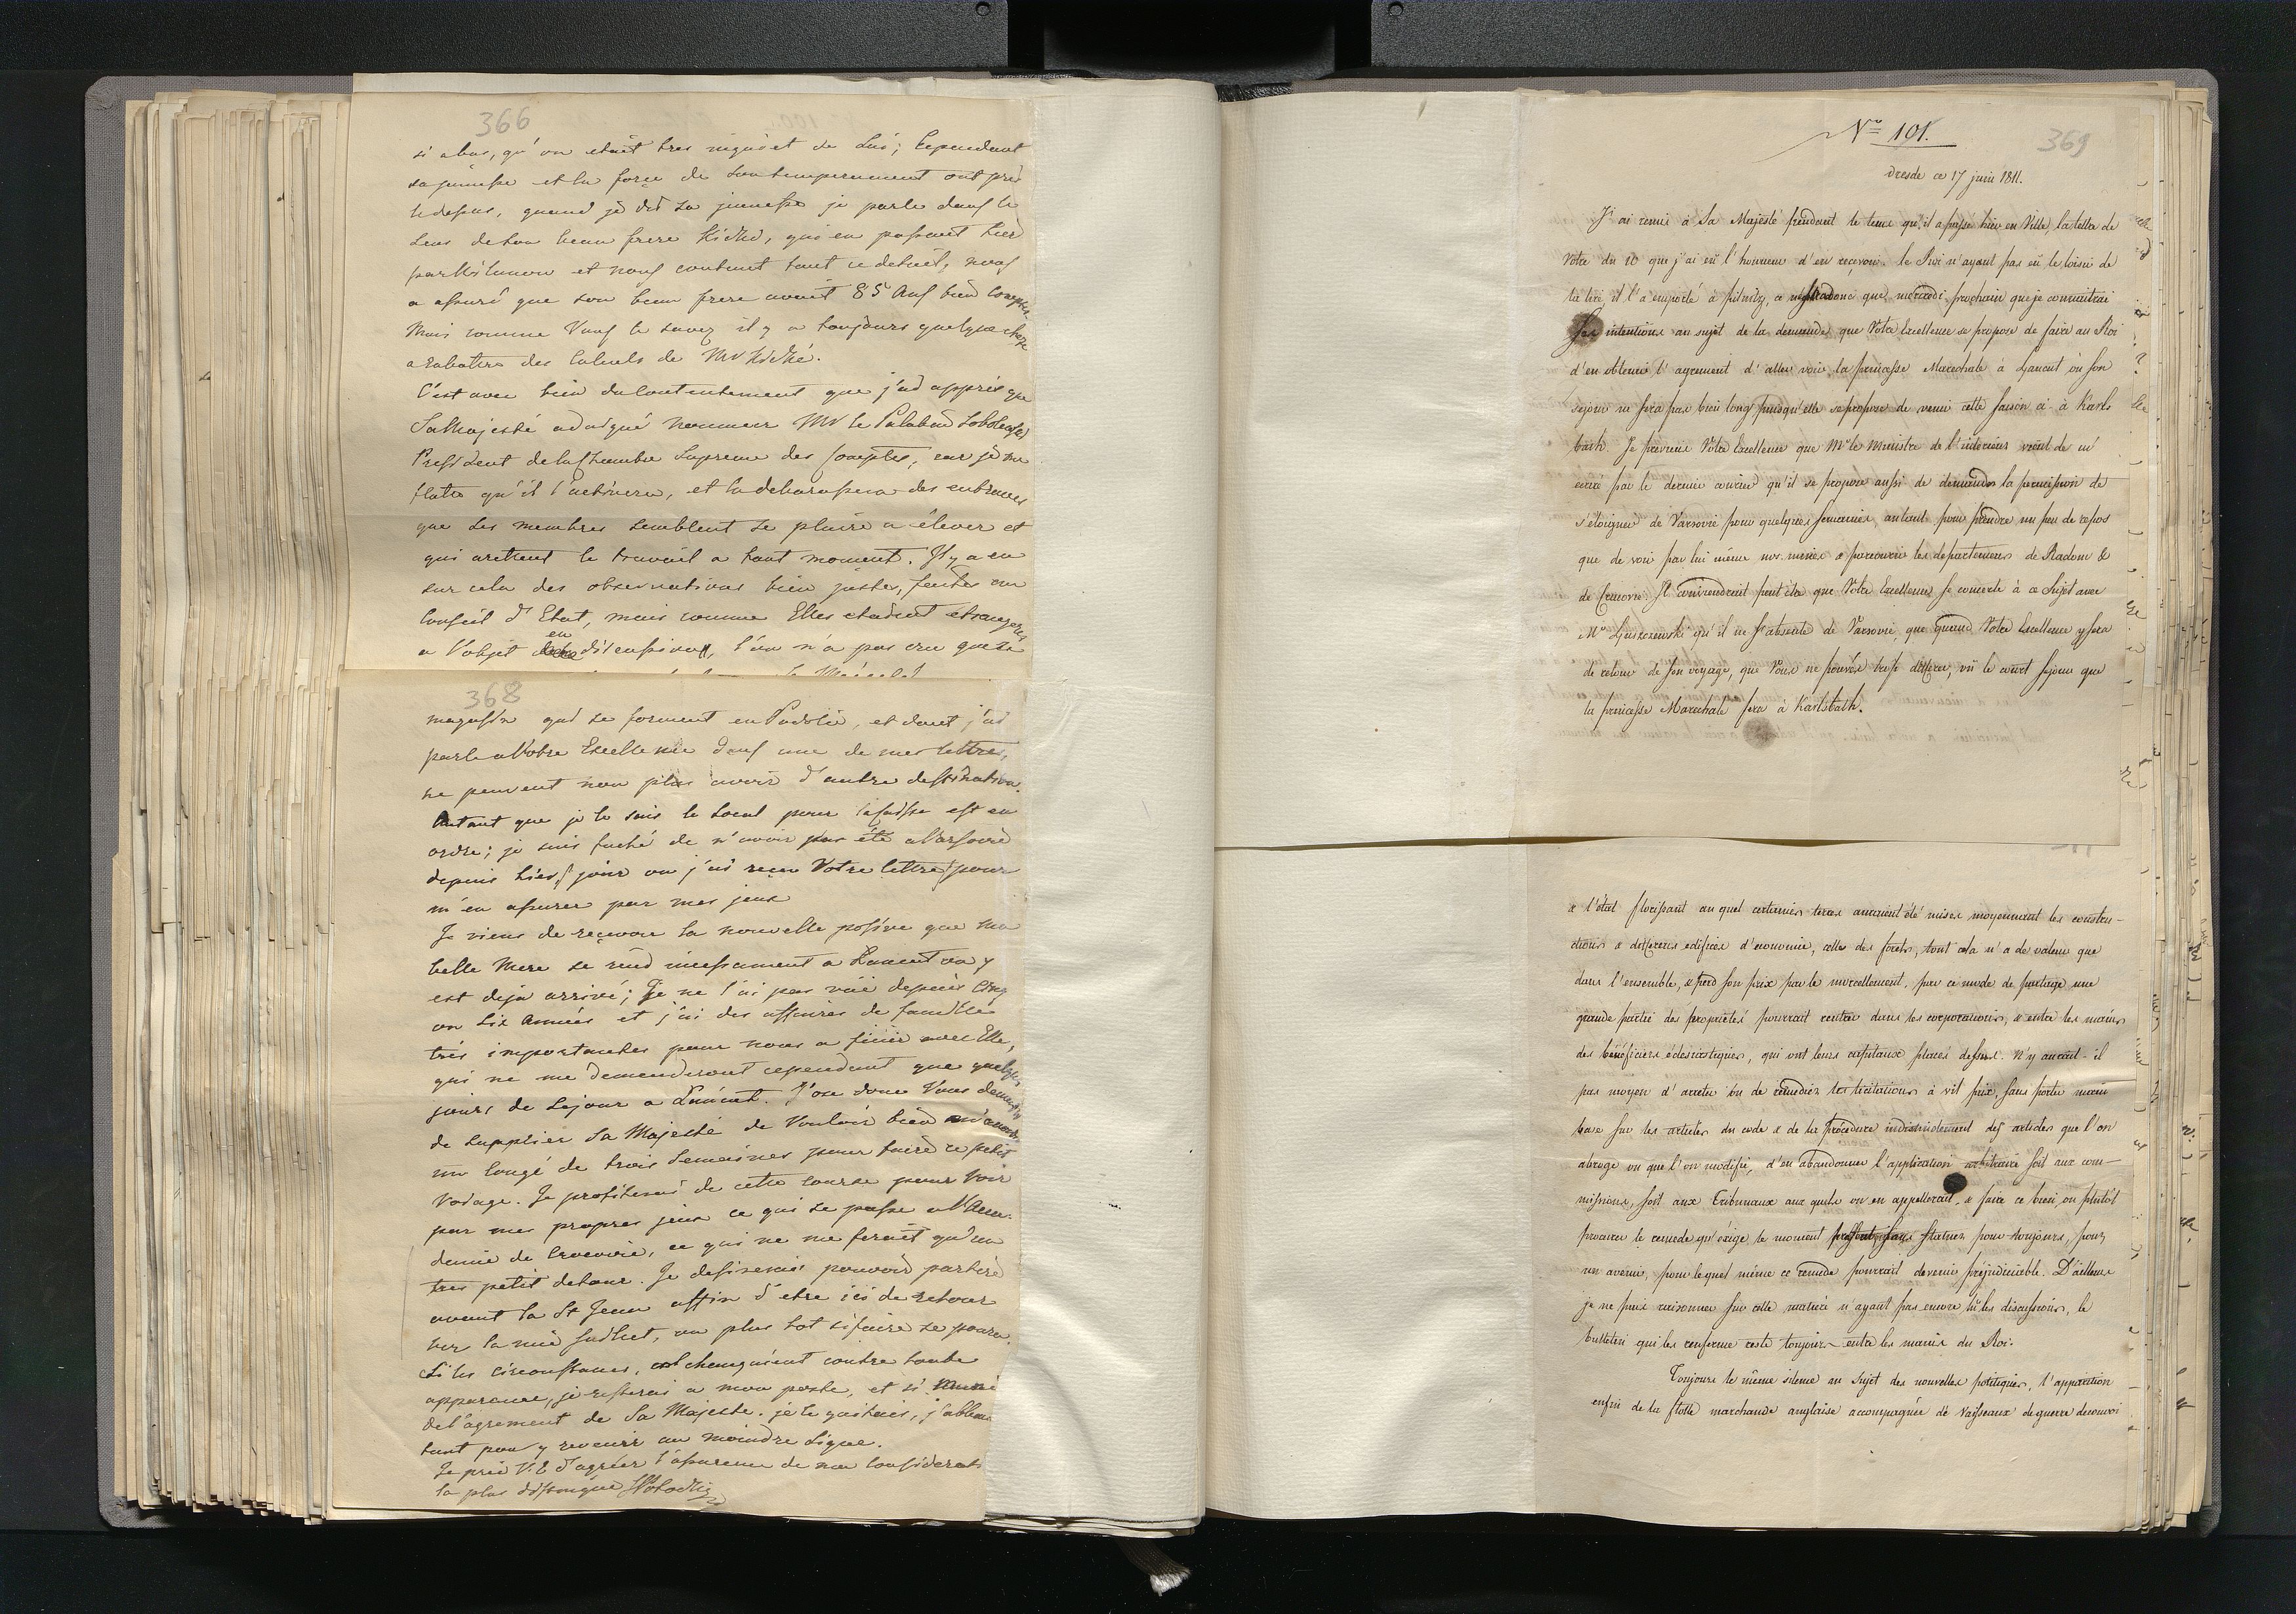 366
si abas, qu'on etait tres inquiet de Lui; Cependant
sa jeunesse et la force de son temperamment ont pris
le dessus, quand je dis sa jeunesse je parle dans le
sens de son beau frere Kicki, qui en passant hier
par Wilanow et nous contant tout ce detail, nous
a assuré que son beau frere avait 85 ans bien comptés.
Mais comme Vous le savez il y a toujours quelque chose
a rabattre des Calculs de Mr Kicki.
C'est avec bien du Contentement que j'ai appris que
Sa Majesté a daigné nommer Mr le Palatin
President de la Chambre Supreme des Comptes, car je me
flatte qu'il l'activera, et la debarassera des entraves
que ses membres semblent se plaire a élever et
qui arettent le travail a tout moment. Il y a eu
sur cela des observations bien justes, faites au
Conseil d'Etat, mais comme Elles etaient etrangeres
a l'objet en discussion, l'on n'a pas cru que
368
magasin qui se forment en Podolie, et dont j'ai
parlé a Votre Excellence dans une de mes lettres,
ne peuvent non plus avoir d'autre destination.
Autant que je le sais le local pour la Caisse est en
ordre; je suis faché de n'avoir pas été a Varsovie
depuis hier, jour ou j'ai recu Votre lettre, pour
m'en assurer par mes jeux
Je viens de reçevoir la nouvelle positive que ma
belle Mere se rend incessament a Lancut ou y
est deja arrivé; Je ne l'ai pas vüe depuis Cinq
ou Six Années et j'ai des affaires de famille
très importantes pour nous a finir avec Elle,
qui ne me demanderont cependant que quelques
jours de sejour a Lancut. J'ose donc Vous demander
de supplier Sa Majesté de Vouloir bien
un Congé de trois Semaines pour faire ce petit
Voiage. Je profiterai de cette course pour Voir
par mes propres jeux ce qui se passe a l'Aca-
demie de Cracovie, ce qui ne me ferait qu'un
tres petit detour. Je desirerais pouvoir partir
avant la St Jean affin d'etre ici de retour
ver la mie Juillet, ou plus tot si faire se pourra.
Si les circonstances, changeaient contre toute
apparence, je resterai a mon poste, et si
de l'agrement de Sa Majesté, je le quitais,
tant pour y revenir au moindre Signe.
Je prie V. E. d'agréer l'assurance de ma Consideration
la plus distinguée SPotocki
369
No 101.
Dresde ce 17 juin 1811.
J'ai remis à Sa Majesté pendant le tems qu'il a passé hier en Ville, la lettre de
Votre du 10 que j'ai eû l'honneur d'en recevoir. le Roi n'ayant pas eû le loisir de
la lire il l'a emporté à pilnitz, ce donc que mercredi prochain que je connaitrai
Ses intentions au sujet de la demande que Votre Excellence se propose de faire au Roi
d'en obtenir l'agrement d'aller voir la princesse Marechale à Lancut où son
sejour ne sera pas bien long puisqu'elle se propose de venir cette saison ci à Karls
bath. Je previens Votre Excellence que Mr le Ministre de l'interieur vient de m'
ecrire par le dernier courier qu'il se propose aussi de demander la permission de
s'éloigner de Varsovie pour quelques semaines, autant pour prendre un peu de repos
que de voir par lui même nos mines & parcourir les departemens de Radom &
de Cracovie. Il conviendrait peut être que Votre Excellence se concerte à ce Sujet avec
Mr Łuszczewski qu'il ne s'absente de Varsovie, que quand Votre Excellence y sera
de retour de son voyage, que Vous ne pouvés trop differer, vû le court sejour que
la princesse Marechale fera à Karlsbath.
& l'état florissant au quel certaines terres auraient été mises moyennant les constru-
ctions & differens edifices d'economie, celle des forêts, tout cela n'a de valeur que
dans l'ensemble, & perd son prix par le morcellement, par ce mode de partage une
grande partie des propriétés pourrait rentrer dans les corporations, & entre les mains
des bénéficiers éclesiastiques, qui ont leurs capitaux placés dessus. N'y aurait-il
pas moyen d'arreter ou de remedier les licitations à vil prix, sans porter main
basse sur les articles du code & de la procédure indistinctement des articles que l'on
abroge ou que l'on modifie, d'en abandonner l'application arbitraire soit aux com-
missions, soit aux Tribunaux aux quels on en appellerait, & faire ce bien, ou plutôt
procurer le remede qu'éxige le moment present, sans statuer pour toujours, pour
un avenir, pour lequel même ce remede pourrait devenir préjudiciable. D'ailleurs
je ne puis raisonner sur cette matière n'ayant pas encore lû les discussions, le
bulletin qui les renferme reste toujours entre les mains du Roi.
Toujours le même silence au sujet des nouvelles politiques, l'apparition
enfin de la flotte marchande anglaise accompagnée de Vaisseaux de guerre de convoi